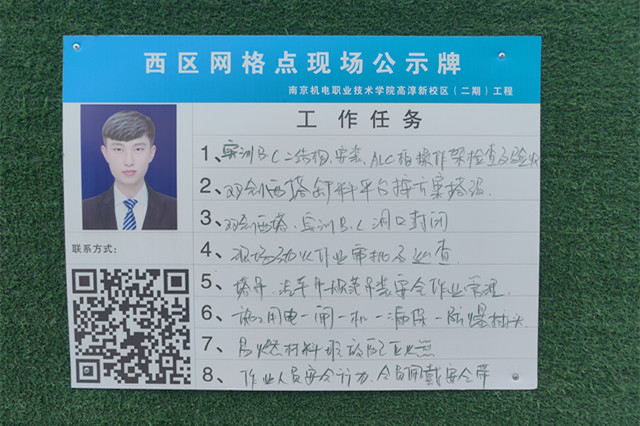 西区网格点现场公示牌
南京机电职业技术学院高淳新校区（二期）工程
工作任务
联系方式：
1、实训B、C二结构、安装、ALC板操作架检查及验收
2、双创西塔卸料平台按方案搭设.
3、双创西塔、实训B.C洞口封闭
4、现场动火作业审批及巡查.
5、塔吊、汽车吊规范吊装安全作业管理.
6、施工用电一闸一机一漏保一防爆插头
7、易燃材料
8、作业人员安全行为.全员佩戴安全带